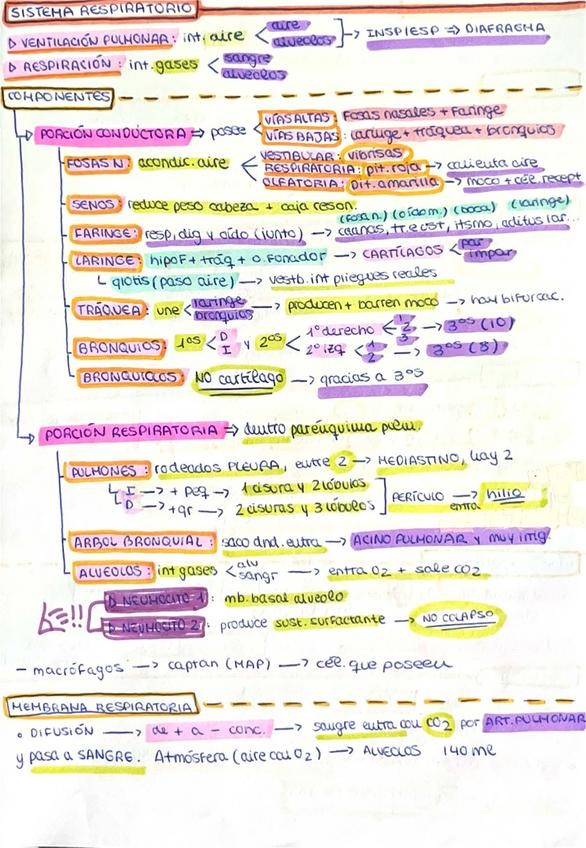 SISTEMA RESPIRATORIO
▷ VENTILACIÓN PULMONAR: int. aire < aire alveolos ] → INSP/ESP ⇒ DIAFRAGMA
▷ RESPIRACIÓN: int. gases < sangre alveolos
COMPONENTES
PORCIÓN CONDUCTORA ⇒ posee < VÍAS ALTAS: Fosas nasales + Faringe
VÍAS BAJAS: laringe + tráquea + bronquios
FOSAS N: acondic. aire < VESTIBULAR: vibrisas
RESPIRATORIA: pit. roja → calienta aire
OLFATORIA: pit. amarilla → moco + cél. recept
SENOS: reduce peso cabeza + caja reson.
(fosa n.) (oído m.) (boca) (laringe)
FARINGE: resp, dig y oído (junto) → coanas, tr. eust, itsmo, aditus lar...
LARINGE: hipoF + tráq + o. fonador → CARTÍLAGOS < par impar
↳ glotis (paso aire) → vestb. int pliegues reales
TRÁQUEA: une < laringe bronquios → producen + barren moco → hay bifurcac.
BRONQUIOS: 1os < D I y 2os < 1º derecho < 1 2 3 → 3os (10)
2º izq < 1 2 → 3os (8)
BRONQUIOLOS: NO cartílago → gracias a 3os
PORCIÓN RESPIRATORIA ⇒ dentro parénquima pulm.
PULMONES: rodeados PLEURA, entre 2 → MEDIASTINO, hay 2
↳ I → + peq → 1 cisura y 2 lóbulos
D → + gr → 2 cisuras y 3 lóbulos ] PERÍCULO → entra hilio
ARBOL BRONQUIAL: saco dnd. entra → ACINO PULMONAR y muy irrg.
ALVEOLOS: int gases < alv sangr → entra O2 + sale CO2
▷ NEUMOCITO 1: mb. basal alveolo
▷ NEUMOCITO 2: produce sust. surfactante → NO COLAPSO
- macrófagos → captan (MAP) → cél. que poseen
MEMBRANA RESPIRATORIA
• DIFUSIÓN → de + a - conc. → sangre entra con CO2 por ART. PULMONAR
y pasa a SANGRE. Atmósfera (aire con O2) → ALVEOLOS 140 ml